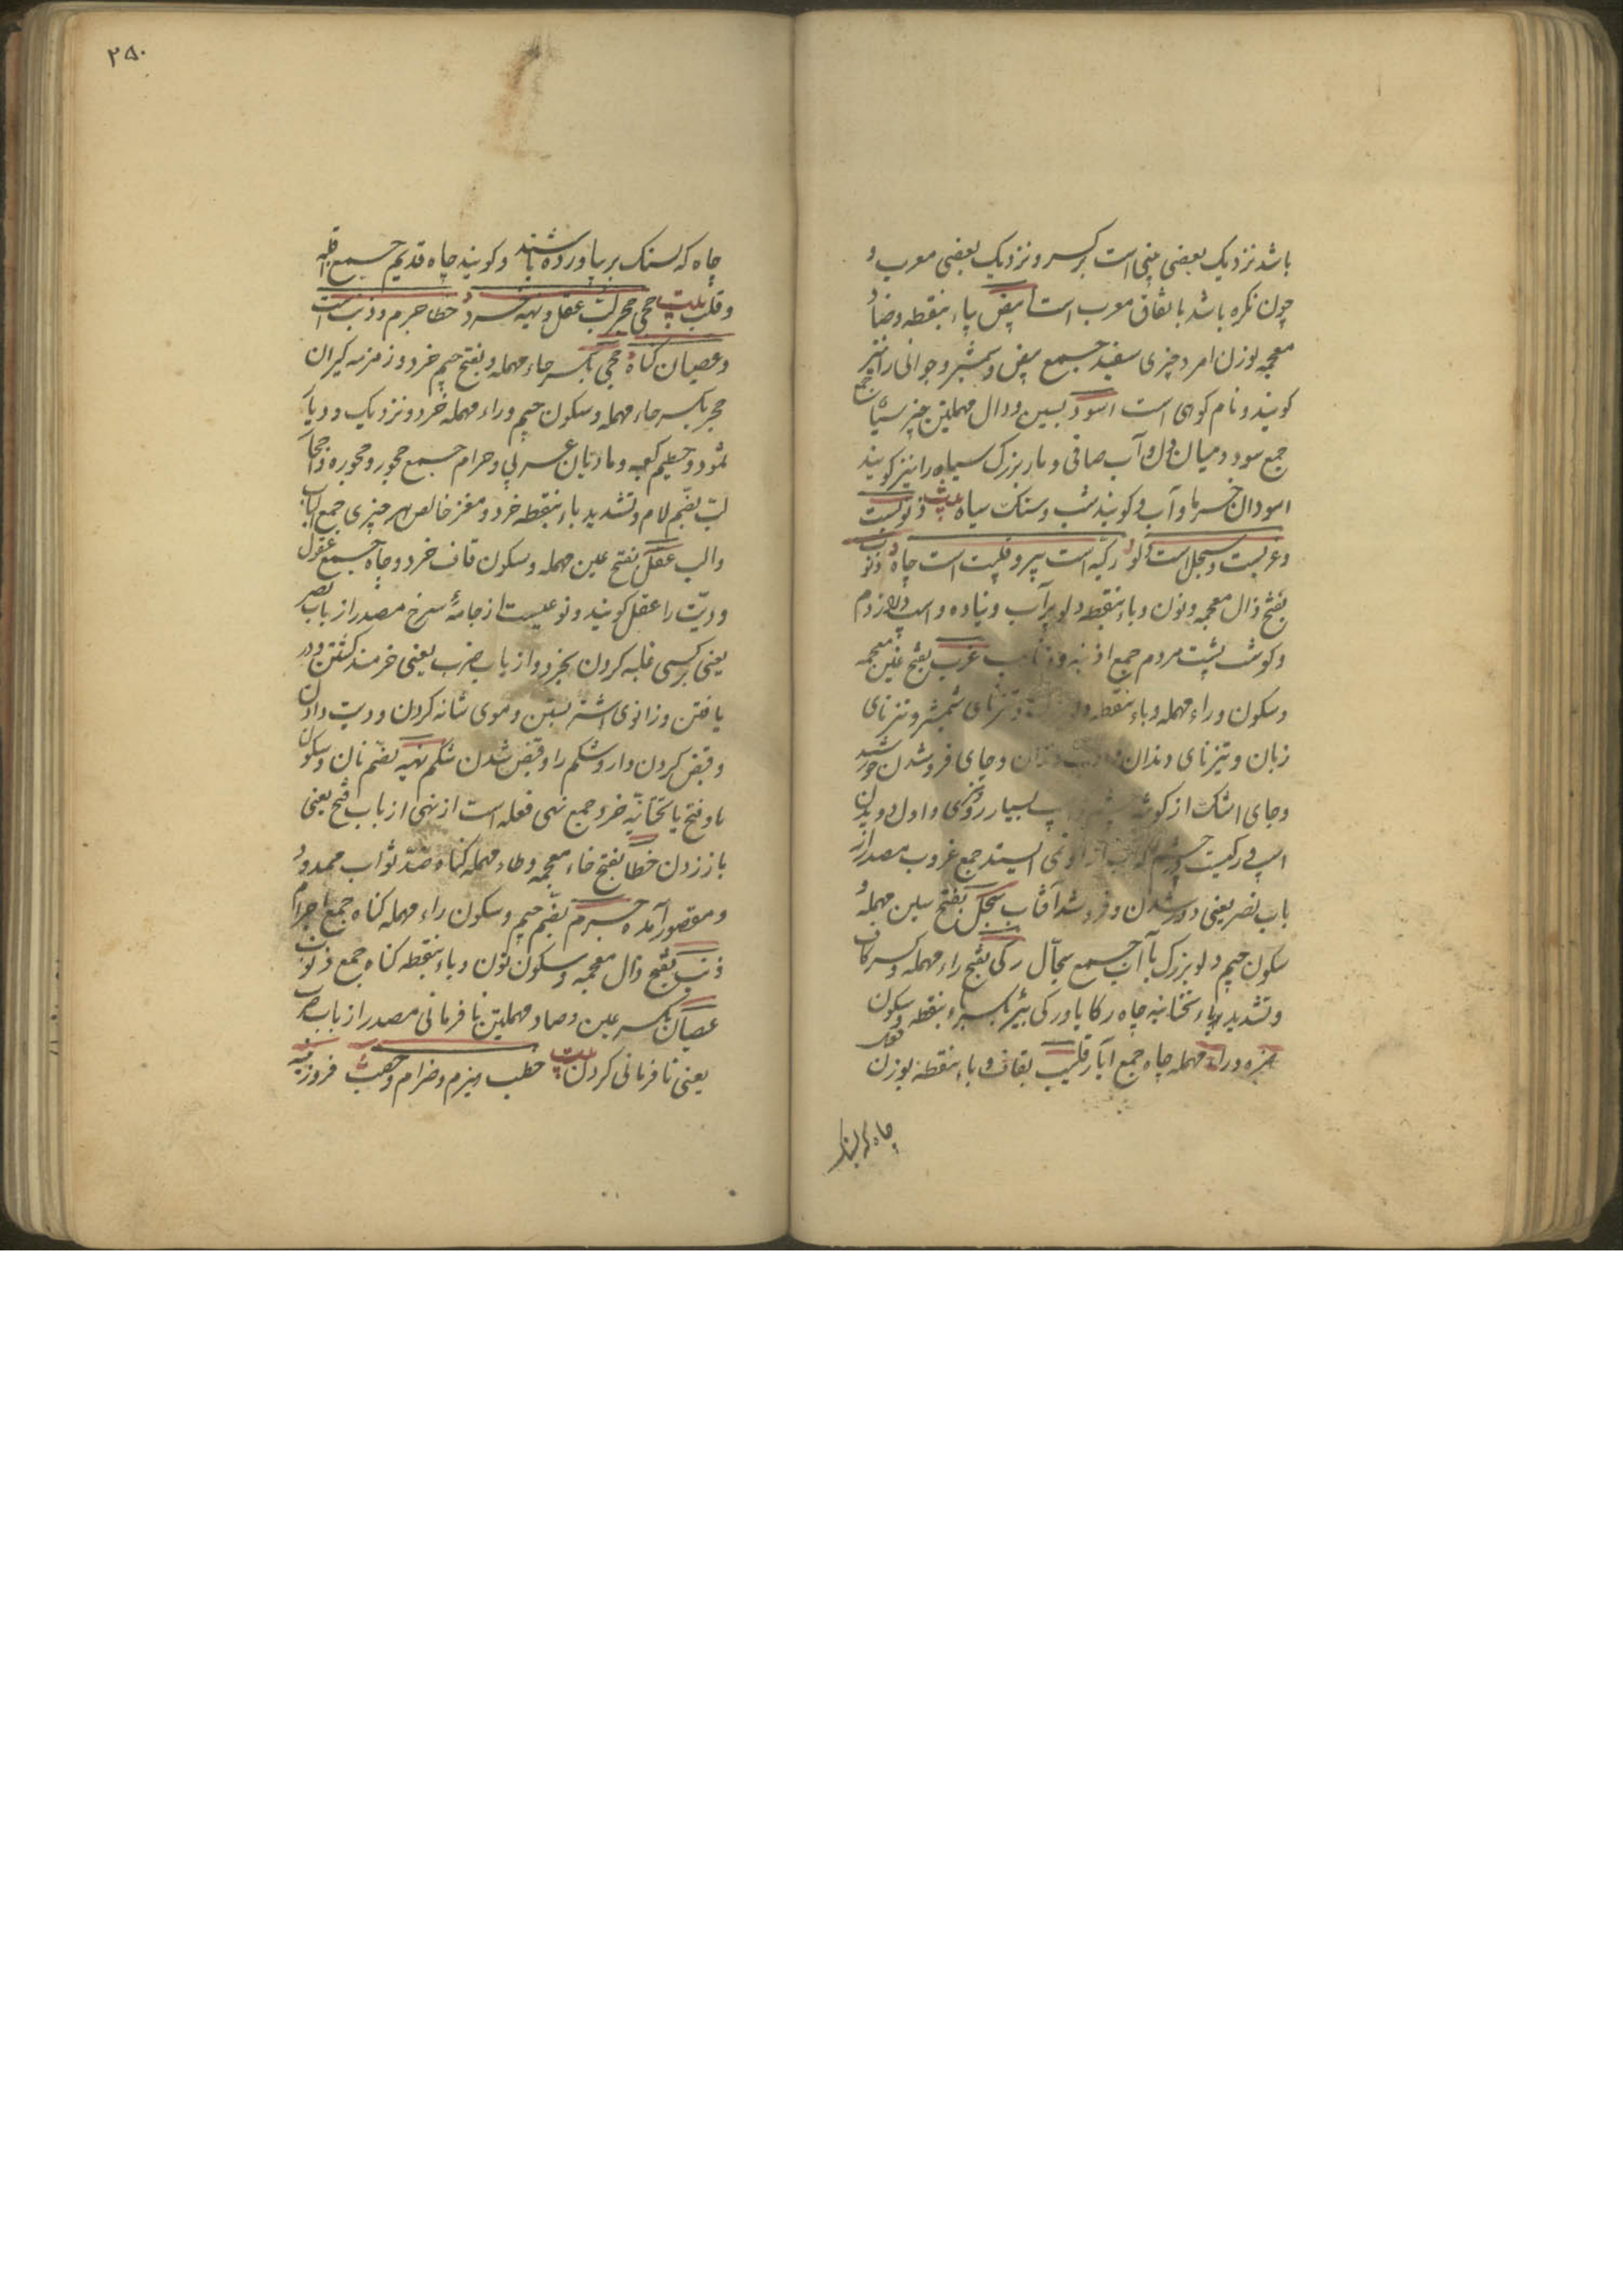 باشد نزدیک بعضی مبنی است بر کسر و نزدیک بعضی معرب و
چون نکره باشد باتفاق معرب است ابیض بیاء بنقطه و ضاد
معجمه بوزن امرد چیزی سفید جمع بیض و شمشیر و جوانی را نیز
کویند و نام کوهی است اسود بسین و دال مهملتین چیز سیاه
جمع سود و میان دل و آب صافی و مار بزرک سیاه را نیز کویند
اسودان خرما و آب و کویند شب و سنک سیاه بیت ذنوبست
و غربست و سجل است دلو رکیه است بیر و قلیب است چاه ذنوب
بفتح ذال معجمه و نون و باء بنقطه دلو پر آب و نیاده و اسپ دراز دم
و کوشت پشت مردم جمع اذنبه و غرب بفتح غین معجمه
و سکون و راء مهمله و باء بنقطه و تیزنای شمشیر و تیزنای
زبان و تیزنای دندان و جای فرو شدن خورشید
و جای اشک از کوشه بسیار روزی و اول دویدن
اسپ نمی ایستد جمع غروب مصدر از
باب نصر یعنی دور شدن و فرو شد آفتاب سجل بفتح سین مهمله و
سکون جیم دلو بزرک با آب جمع سجال رکی بفتح راء مهمله و کسر کاف
و تشدید یاء تحتانیه چاه رکایا و رکی بئر بکسر باء بنقطه و سکون
همزه و راء مهمله چاه جمع آبار قلیب بقاف و باء بنقطه بوزن
چاه که بسنک
۲۵۰
چاه که بسنک بر نیاورده باشند و کویند چاه قدیم جمع اقلبه
و قلب بیت حجی حجر لب عقل و نهیه خرد خطا جرم و ذنب است
و عصیان کناه حجی بکسر حاء مهمله و بفتح جیم خرد و زمزمه کبران
حجر بکسر حاء مهمله و سکون جیم و راء مهمله خرد و نزدیک و دیار
ثمود و حطیم کعبه و مادیان عربی و حرام جمع حجور و حجوره و احجار
لب بضم لام و تشدید باء بنقطه خرد و مغز خالص هر چیزی جمع الباب
و الب عقل بفتح عین مهمله و سکون قاف خرد و جاه جمع عقول
و دیت را عقل کویند و نوعیست از جامهٔ سرخ مصدر از باب نصر
یعنی بر کسی غلبه کردن بخرد و از باب ضرب یعنی خرمند کشتن و در
یافتن و زانوی اشتر بستن و موی شانه کردن و دیت دادن
و قبض کردن دارو شکم را و قبض شدن شکم نهیه بضم نان و سکون
ها و فتح یا تحتانیه خرد جمع نهی فعله است از نهی از باب فتح یعنی
باز زدن خطا بفتح خاء معجمه و طاء مهمله کناه ضد ثواب ممدود
و مقصور آمده جرم بضم جیم و سکون راء مهمله کناه جمع اجرام
ذنب بفتح ذال معجمه و سکون نون و باء بنقطه کناه جمع ذنوب
عصیان بکسر عین و صاد مهملتین نافرمانی مصدر از باب ضرب
یعنی نافرمانی کردن بیت حطب هیزم و ضرام و حصب فروزینه